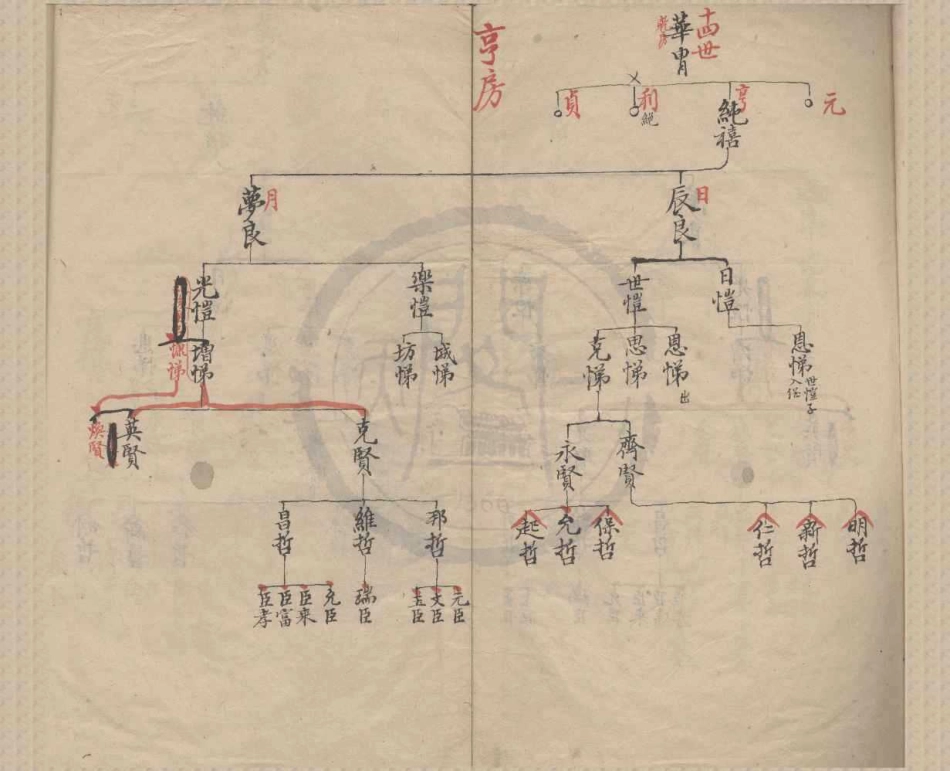 十四世
華胄
新房
元
亨
利
絕
貞
純禧
亨房
日
辰良
月
夢良
日愷
世愷
樂愷
光愷
恩悌
世愷子
入侭
恩悌
出
思悌
克悌
城悌
坊悌
增悌
齊賢
永賢
克賢
英賢
煥賢
明哲
新哲
仁哲
保哲
允哲
起哲
邦哲
維哲
昌哲
元臣
文臣
瑞臣
充臣
臣來
臣富
臣孝